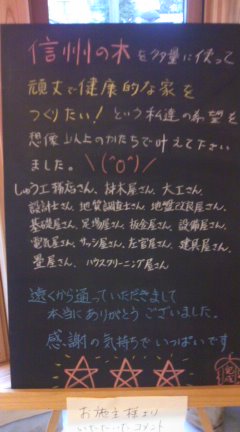 信州の木を多量に使って
頑丈で健康的な家を
つくりたい！という私達の希望を
想像以上のかたちで叶えて下さい
ました。\(^o^)/
しゅう工務店さん、材木屋さん、大工さん、
設計士さん、地質調査士さん、地盤改良屋さん、
基礎屋さん、足場屋さん、板金屋さん、設備屋さん、
電気屋さん、サッシ屋さん、左官屋さん、建具屋さん、
畳屋さん、ハウスクリーニング屋さん
遠くから通っていただきまして
本当にありがとうございました。
感謝の気持ちでいっぱいです
お施主様より
いただいたコメント